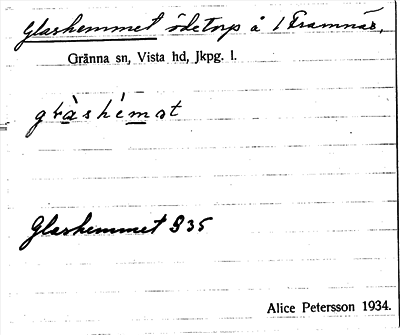 Glashemmet ödetorp å 1 Framnäs,
Gränna sn, Vista hd, Jkpg. l.
Glashemmet S35
Alice Petersson 1934.